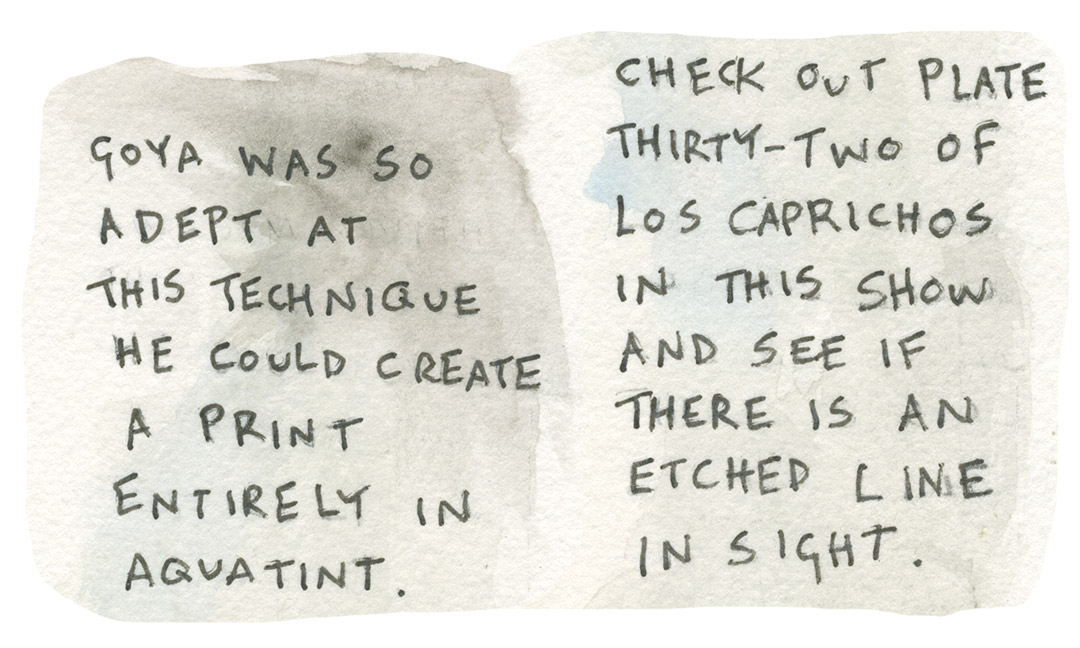 GOYA WAS SO
ADEPT AT
THIS TECHNIQUE
HE COULD CREATE
A PRINT
ENTIRELY IN
AQUATINT.
CHECK OUT PLATE
THIRTY-TWO OF
LOS CAPRICHOS
IN THIS SHOW
AND SEE IF
THERE IS AN
ETCHED LINE
IN SIGHT.